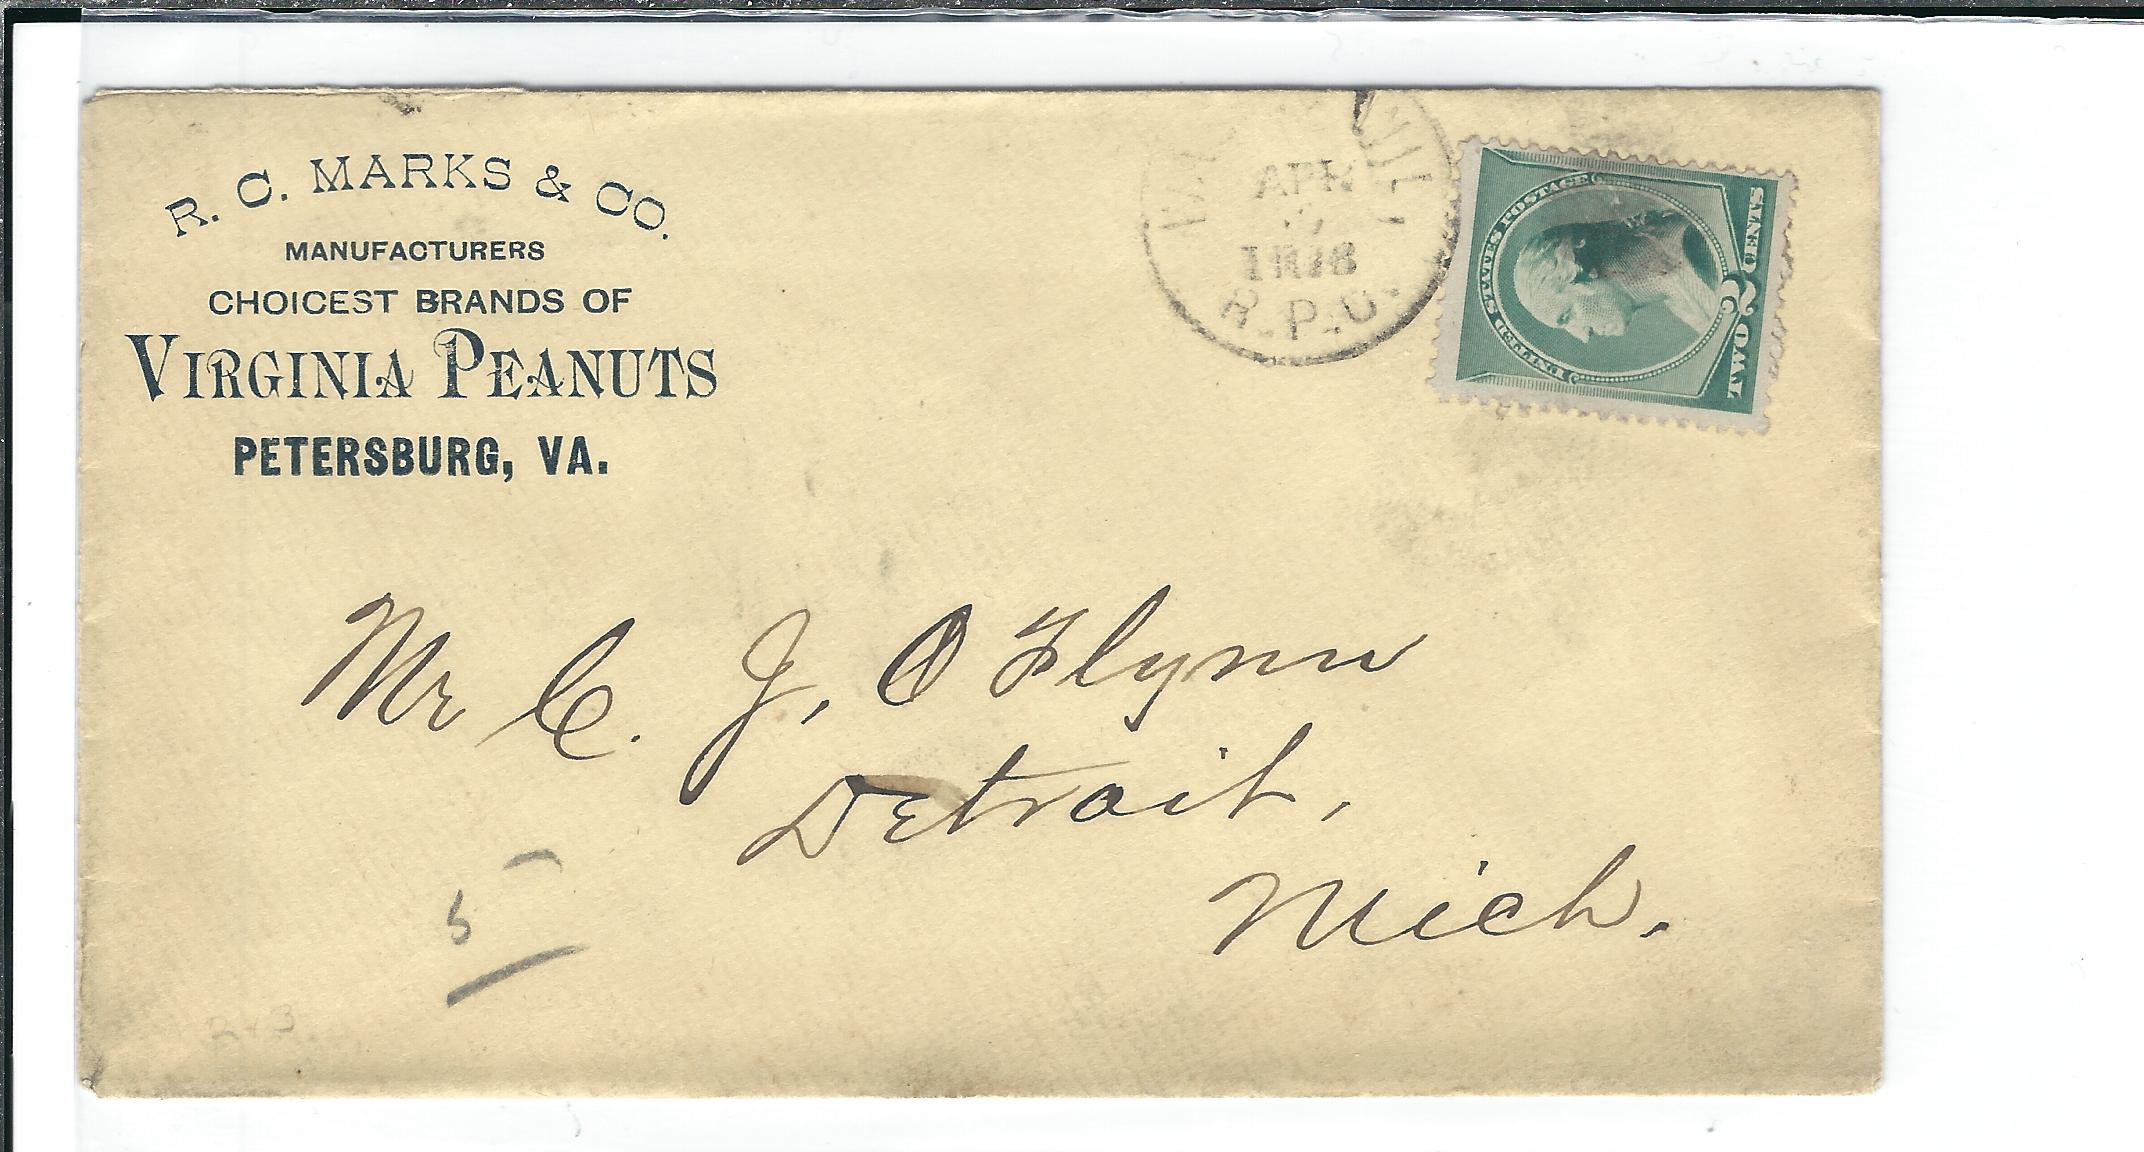 R. C. MARKS & CO.
MANUFACTURERS
CHOICEST BRANDS OF
VIRGINIA PEANUTS
PETERSBURG, VA.
APR
R.P.O.
UNITED STATES POSTAGE
2
TWO CENTS
Mr C. J. O Flynn
Detroit,
Mich.
5